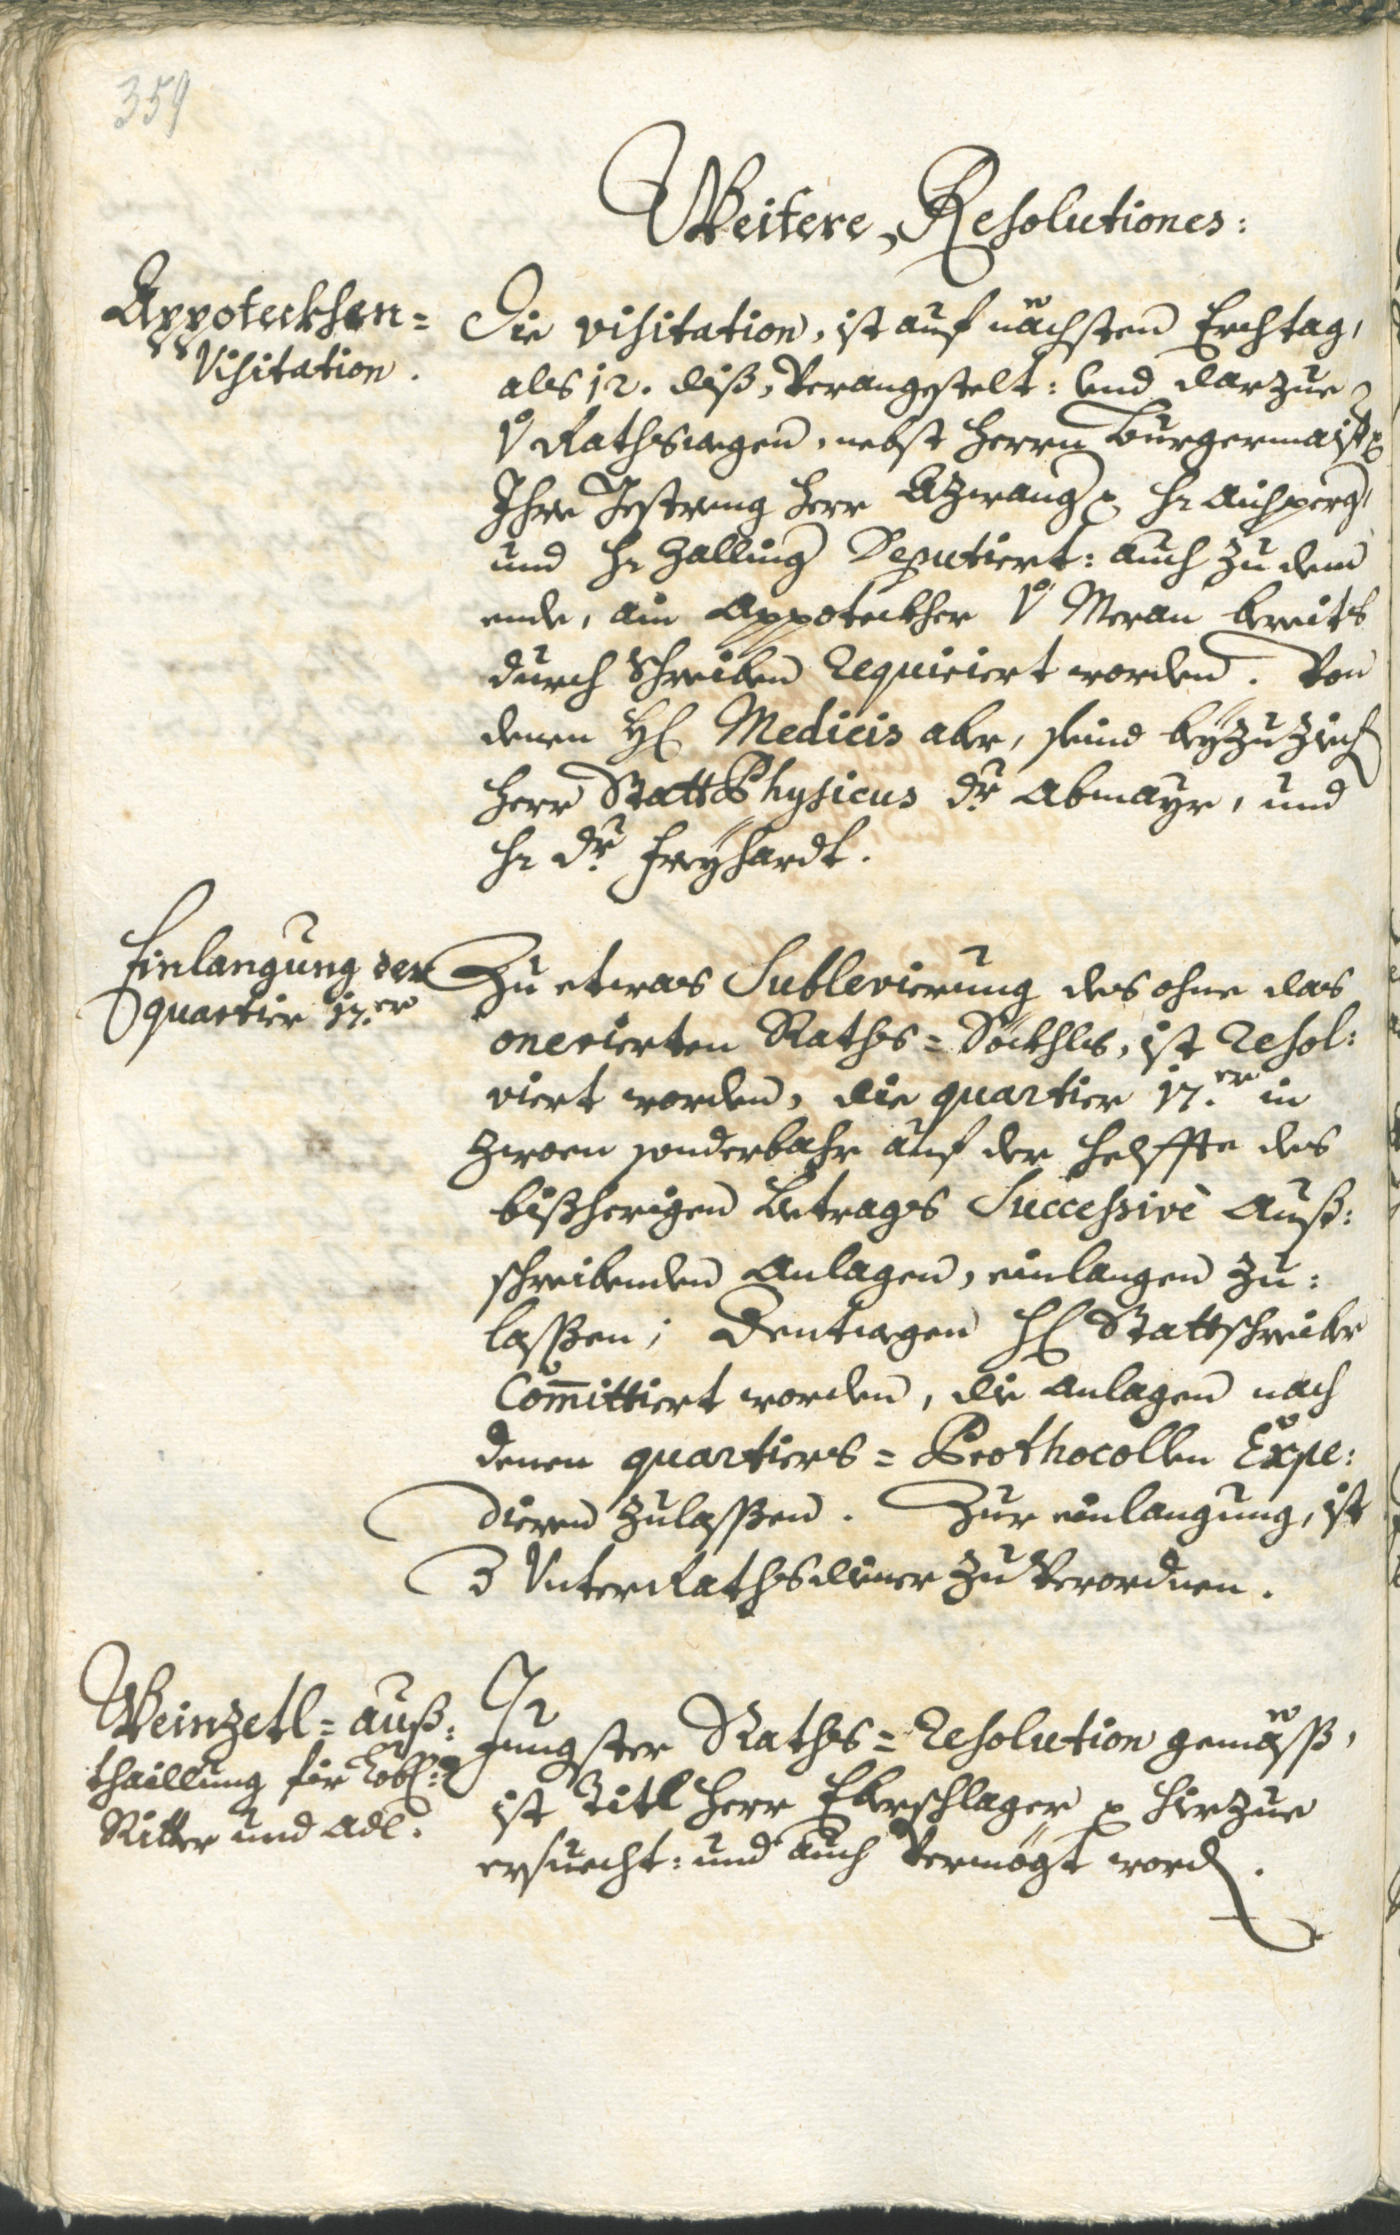 359
Weitere Resolutiones:
Appoteckhen=
Visitation.
Die visitation, ist auf nächsten Erchtag,
als 12. diß, Verangestelt: und darzue
V° Rathswegen, nebst Herrn Burgermaistr
Ihro Gestreng Herr Azwang H: Aichperg,
und H: Zalling Deputiert: auch zu dem
ende, ain Appoteckher V° Meran bereits
durch schreiben Requiriert worden. Von
denen HH Medicis aber, seind beyzuzieh
Herr StattPhysicus Dr Abmayr, und
H: Dr Freyhardt.
Einlangung der
quartier 17.er
Zu etwas Sublevierung des ohne das
onerierten Raths=Söckhls, ist Resol:
viert worden, die quartier 17.er in
zwoen sonderbahr auf der helffte des
bißherigen betrags Successivè Auß:
schreibenden Anlagen, einlangen zu:
lassen; Dentwegen H Stattschreiber
Com̄ittiert worden, die Anlagen nach
denen quartiers=Prothocollen Expe:
dieren zulassen. Zur einlangung, ist
3 Unterrathsdiener zu Verordnen.
Weinzetl=auß:
thaillung für Lobl:
Ritter und Adl.
Jungster Raths=Resolution gemäß,
ist Titl Herr Eberschlager hierzue
ersuecht: und auch Vermögt word.